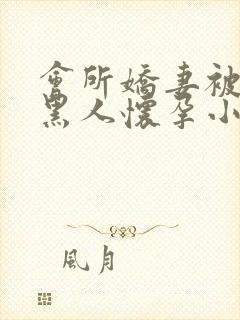 會所嬌妻被
黑人懷孕小
風月